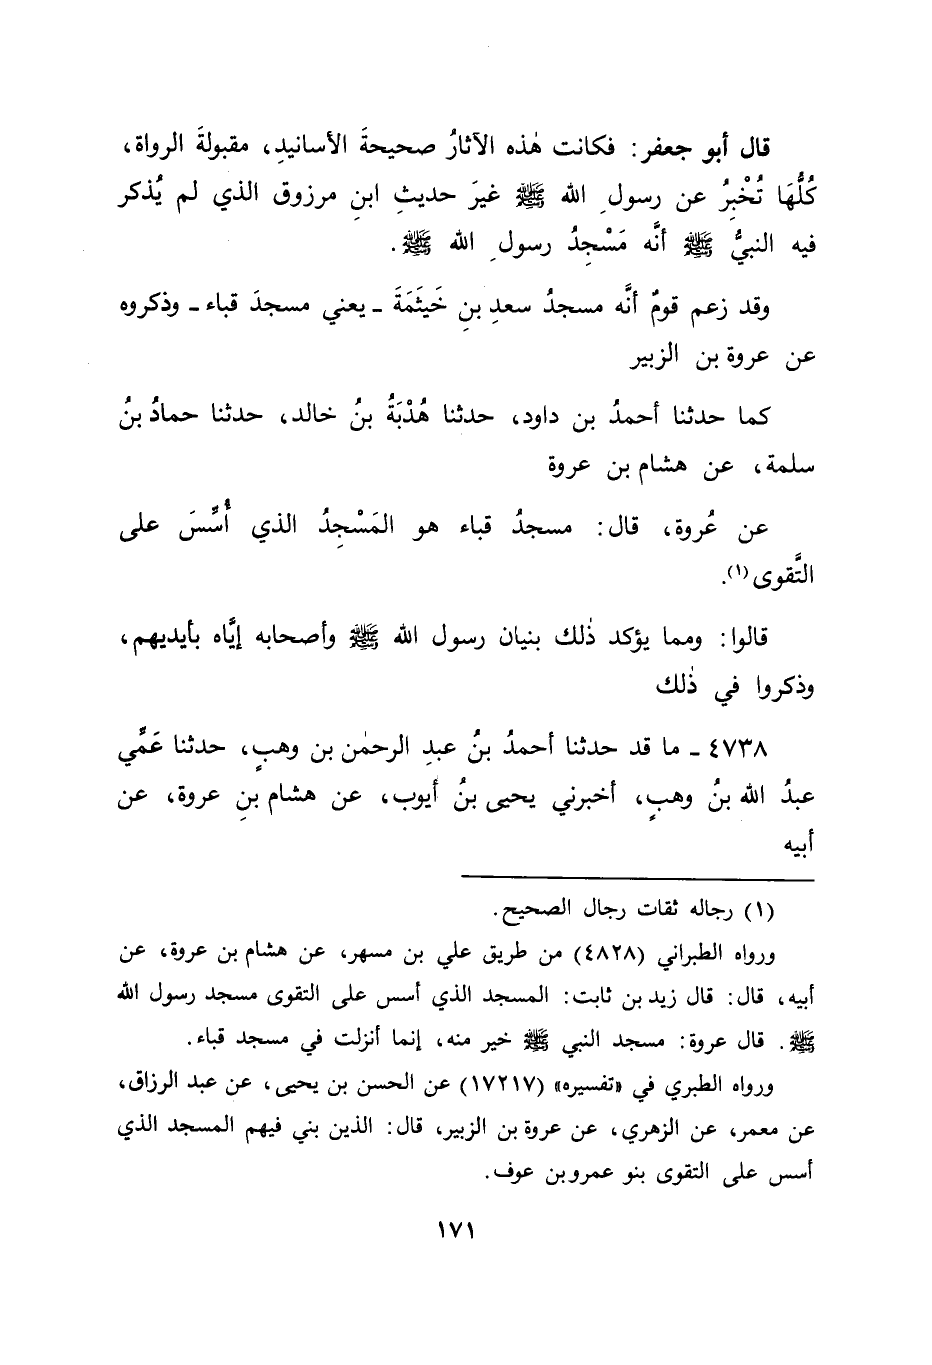 قال أبو جعفر: فكانت هٰذه الآثارُ صحيحةَ الأسانيدِ، مقبولةَ الرواة،
كُلُّهَا تُخْبِرُ عن رسولِ الله ﷺ غيرَ حديثِ ابنِ مرزوق الذي لم يُذكر
فيه النبيُّ ﷺ أنَّه مَسْجِدُ رسولِ الله ﷺ.
وقد زعم قومٌ أنَّه مسجدُ سعدِ بنِ خَيثَمَةَ ـ يعني مسجدَ قباء ـ وذكروه
عن عروة بن الزبير
كما حدثنا أحمدُ بن داود، حدثنا هُدْبَةُ بنُ خالد، حدثنا حمادُ بنُ
سلمة، عن هشام بن عروة
عن عُروة، قال: مسجدُ قباء هو المَسْجِدُ الذي أُسِّسَ على
التَّقوى(١).
قالوا: ومما يؤكد ذٰلك بنيان رسول الله ﷺ وأصحابه إيَّاه بأيديهم،
وذكروا في ذٰلك
٤٧٣٨ ـ ما قد حدثنا أحمدُ بنُ عبدِ الرحمٰن بن وهبٍ، حدثنا عَمِّي
عبدُ الله بنُ وهبٍ، أخبرني يحيى بنُ أيوب، عن هشام بنِ عروة، عن
أبيه
(١) رجاله ثقات رجال الصحيح.
ورواه الطبراني (٤٨٢٨) من طريق علي بن مسهر، عن هشام بن عروة، عن
أبيه، قال: قال زيد بن ثابت: المسجد الذي أسس على التقوى مسجد رسول الله
ﷺ. قال عروة: مسجد النبي ﷺ خير منه، إنما أنزلت في مسجد قباء.
ورواه الطبري في «تفسيره» (١٧٢١٧) عن الحسن بن يحيى، عن عبد الرزاق،
عن معمر، عن الزهري، عن عروة بن الزبير، قال: الذين بني فيهم المسجد الذي
أسس على التقوى بنو عمرو بن عوف.
١٧١